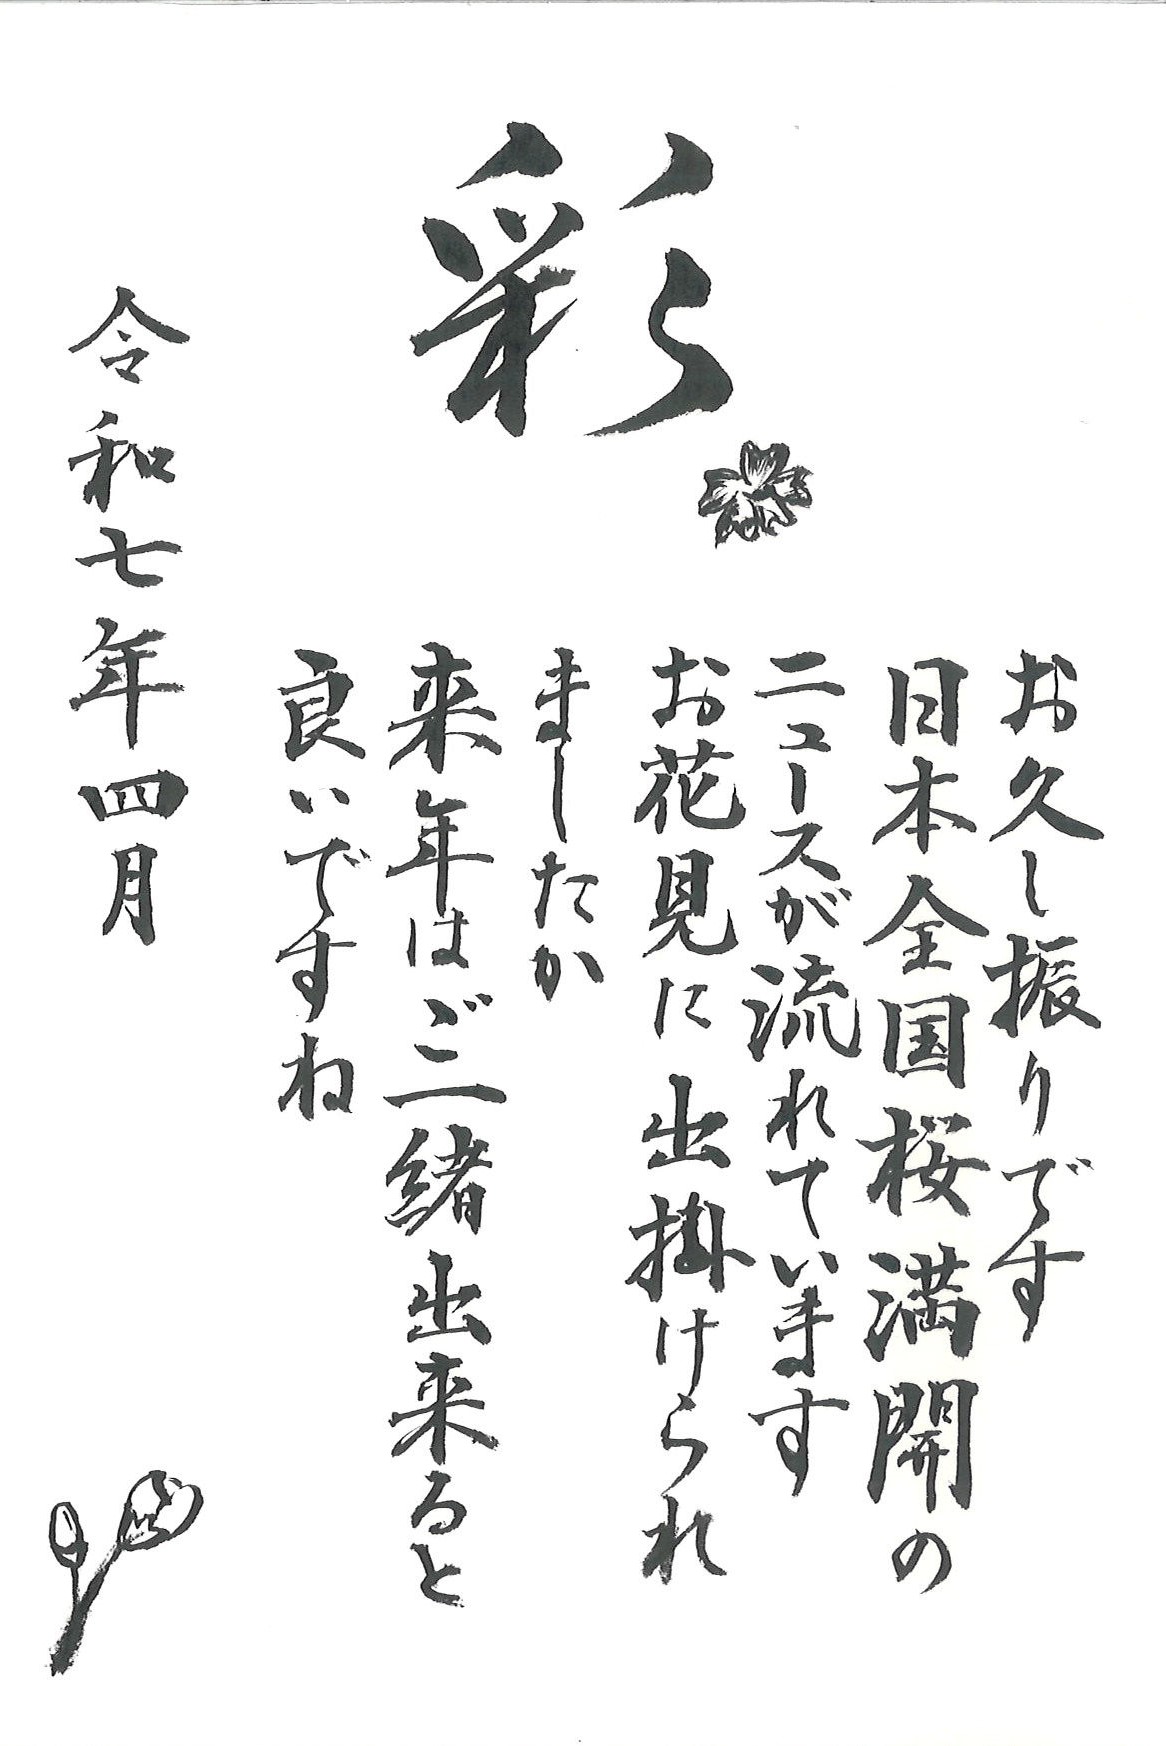 彩
お久し振りです
日本全国桜満開の
ニュースが流れています
お花見に出掛けられ
ましたか
来年はご一緒出来ると
良いですね
令和七年四月